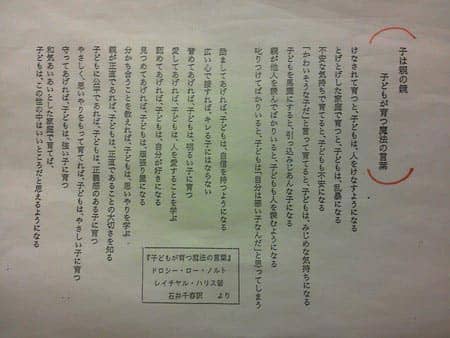 子は親の鏡
子どもが育つ魔法の言葉
けなされて育つと、子どもは、人をけなすようになる
とげとげした家庭で育つと、子どもは、乱暴になる
不安な気持ちで育てると、子どもも不安になる
「かわいそうな子だ」と言って育てると、子どもは、みじめな気持ちになる
子どもを馬鹿にすると、引っ込みじあんな子になる
親が他人を羨んでばかりいると、子どもも人を羨むようになる
叱りつけてばかりいると、子どもは「自分は悪い子なんだ」と思ってしまう
励ましてあげれば、子どもは、自信を持つようになる
広い心で接すれば、キレる子にはならない
誉めてあげれば、子どもは、明るい子に育つ
愛してあげれば、子どもは、人を愛することを学ぶ
認めてあげれば、子どもは、自分が好きになる
見つめてあげれば、子どもは、頑張り屋になる
分かち合うことを教えれば、子どもは、思いやりを学ぶ
親が正直であれば、子どもは、正直であることの大切さを知る
子どもに公平であれば、子どもは、正義感のある子に育つ
やさしく、思いやりをもって育てれば、子どもは、やさしい子に育つ
守ってあげれば、子どもは、強い子に育つ
和気あいあいとした家庭で育てば、
子どもは、この世の中はいいところだと思えるようになる
『子どもが育つ魔法の言葉』
ドロシー・ロー・ノルト
レイチャル・ハリス著
石井千春訳　より